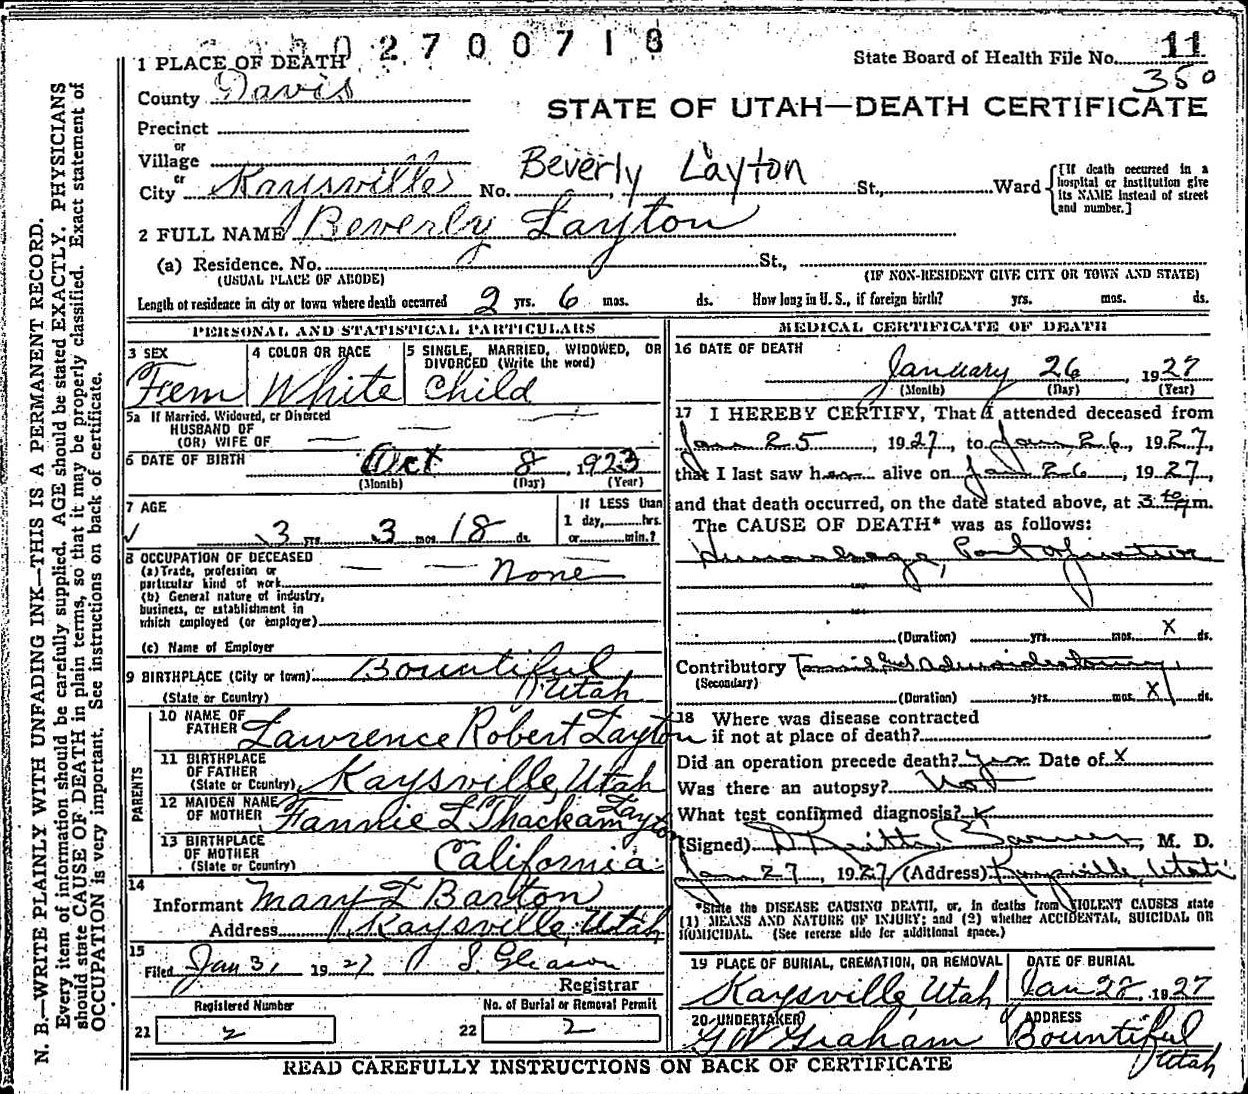 2700718
State Board of Health File No. 11
350
1 PLACE OF DEATH
County Davis
STATE OF UTAH—DEATH CERTIFICATE
Precinct
or
Village
or
City Kaysville No. Beverly Layton St., Ward
[If death occurred in a hospital or institution give its NAME instead of street and number.]
2 FULL NAME Beverly Layton
(a) Residence. No. St.,
(USUAL PLACE OF ABODE) (IF NON-RESIDENT GIVE CITY OR TOWN AND STATE)
Length of residence in city or town where death occurred 2 yrs. 6 mos. ds. How long in U. S., if foreign birth? yrs. mos. ds.
PERSONAL AND STATISTICAL PARTICULARS
3 SEX 4 COLOR OR RACE 5 SINGLE, MARRIED, WIDOWED, OR
DIVORCED (Write the word)
Fem White Child
5a If Married, Widowed, or Divorced
HUSBAND OF
(OR) WIFE OF
6 DATE OF BIRTH Oct 8, 1923
(Month) (Day) (Year)
7 AGE If LESS than
1 day, hrs.
3 yrs. 3 mos. 18 ds. or min.?
8 OCCUPATION OF DECEASED
(a) Trade, profession or
particular kind of work None
(b) General nature of industry,
business, or establishment in
which employed (or employer)
(c) Name of Employer
9 BIRTHPLACE (City or town) Bountiful
(State or Country) Utah
PARENTS
10 NAME OF
FATHER Lawrence Robert Layton
11 BIRTHPLACE
OF FATHER
(State or Country) Kaysville, Utah
12 MAIDEN NAME
OF MOTHER Fannie L Thackam Layton
13 BIRTHPLACE
OF MOTHER
(State or Country) California
14
Informant Mary L Barton
Address Kaysville, Utah
15
Filed Jan 31 1927 S. Gleason
Registrar
Registered Number No. of Burial or Removal Permit
21 2 22 2
MEDICAL CERTIFICATE OF DEATH
16 DATE OF DEATH
January 26, 1927
(Month) (Day) (Year)
17 I HEREBY CERTIFY, That I attended deceased from
Jan 25, 1927, to Jan 26, 1927,
that I last saw her alive on Jan 26, 1927,
and that death occurred, on the date stated above, at 3 40 m.
The CAUSE OF DEATH* was as follows:
Hemorrhage, Post Operative
(Duration) yrs. mos. X ds.
Contributory Tonsillect Adenoidectomy
(Secondary)
(Duration) yrs. mos. X ds.
18 Where was disease contracted
if not at place of death?
Did an operation precede death? Yes Date of X
Was there an autopsy? Not
What test confirmed diagnosis?
(Signed) Barnes, M. D.
Jan 27, 1927 (Address) Kaysville, Utah
*State the DISEASE CAUSING DEATH, or, in deaths from VIOLENT CAUSES state
(1) MEANS AND NATURE OF INJURY; and (2) whether ACCIDENTAL, SUICIDAL OR
HOMICIDAL. (See reverse side for additional space.)
19 PLACE OF BURIAL, CREMATION, OR REMOVAL DATE OF BURIAL
Kaysville, Utah Jan 28, 1927
20 UNDERTAKER ADDRESS
G W Graham Bountiful
Utah
READ CAREFULLY INSTRUCTIONS ON BACK OF CERTIFICATE
N. B.—WRITE PLAINLY WITH UNFADING INK—THIS IS A PERMANENT RECORD.
Every item of information should be carefully supplied. AGE should be stated EXACTLY. PHYSICIANS
should state CAUSE OF DEATH in plain terms, so that it may be properly classified. Exact statement of
OCCUPATION is very important. See instructions on back of certificate.